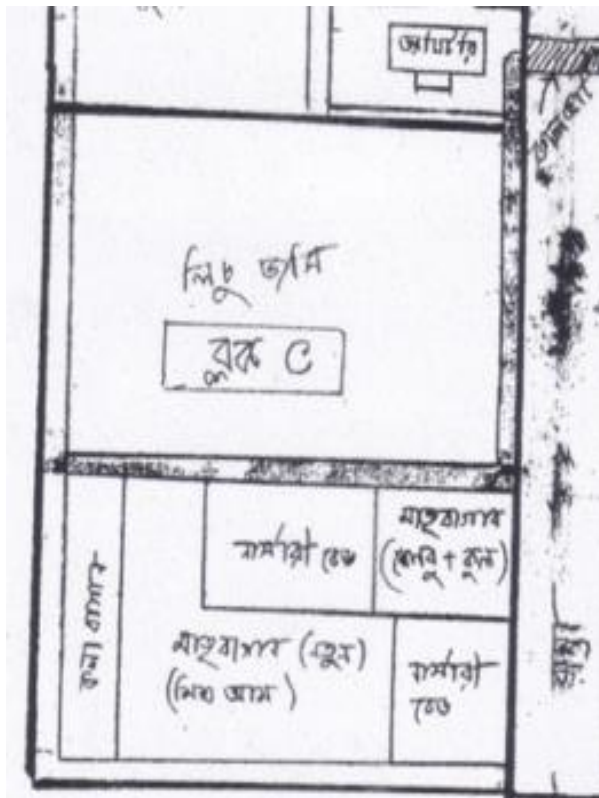 নিচু জমি
ব্লক C
নার্সারী বেড
মাতৃবাগান
(লেবু + কুল)
কলা বাগান
মাতৃবাগান (নতুন)
(মিশ্র আম)
নার্সারী
বেড